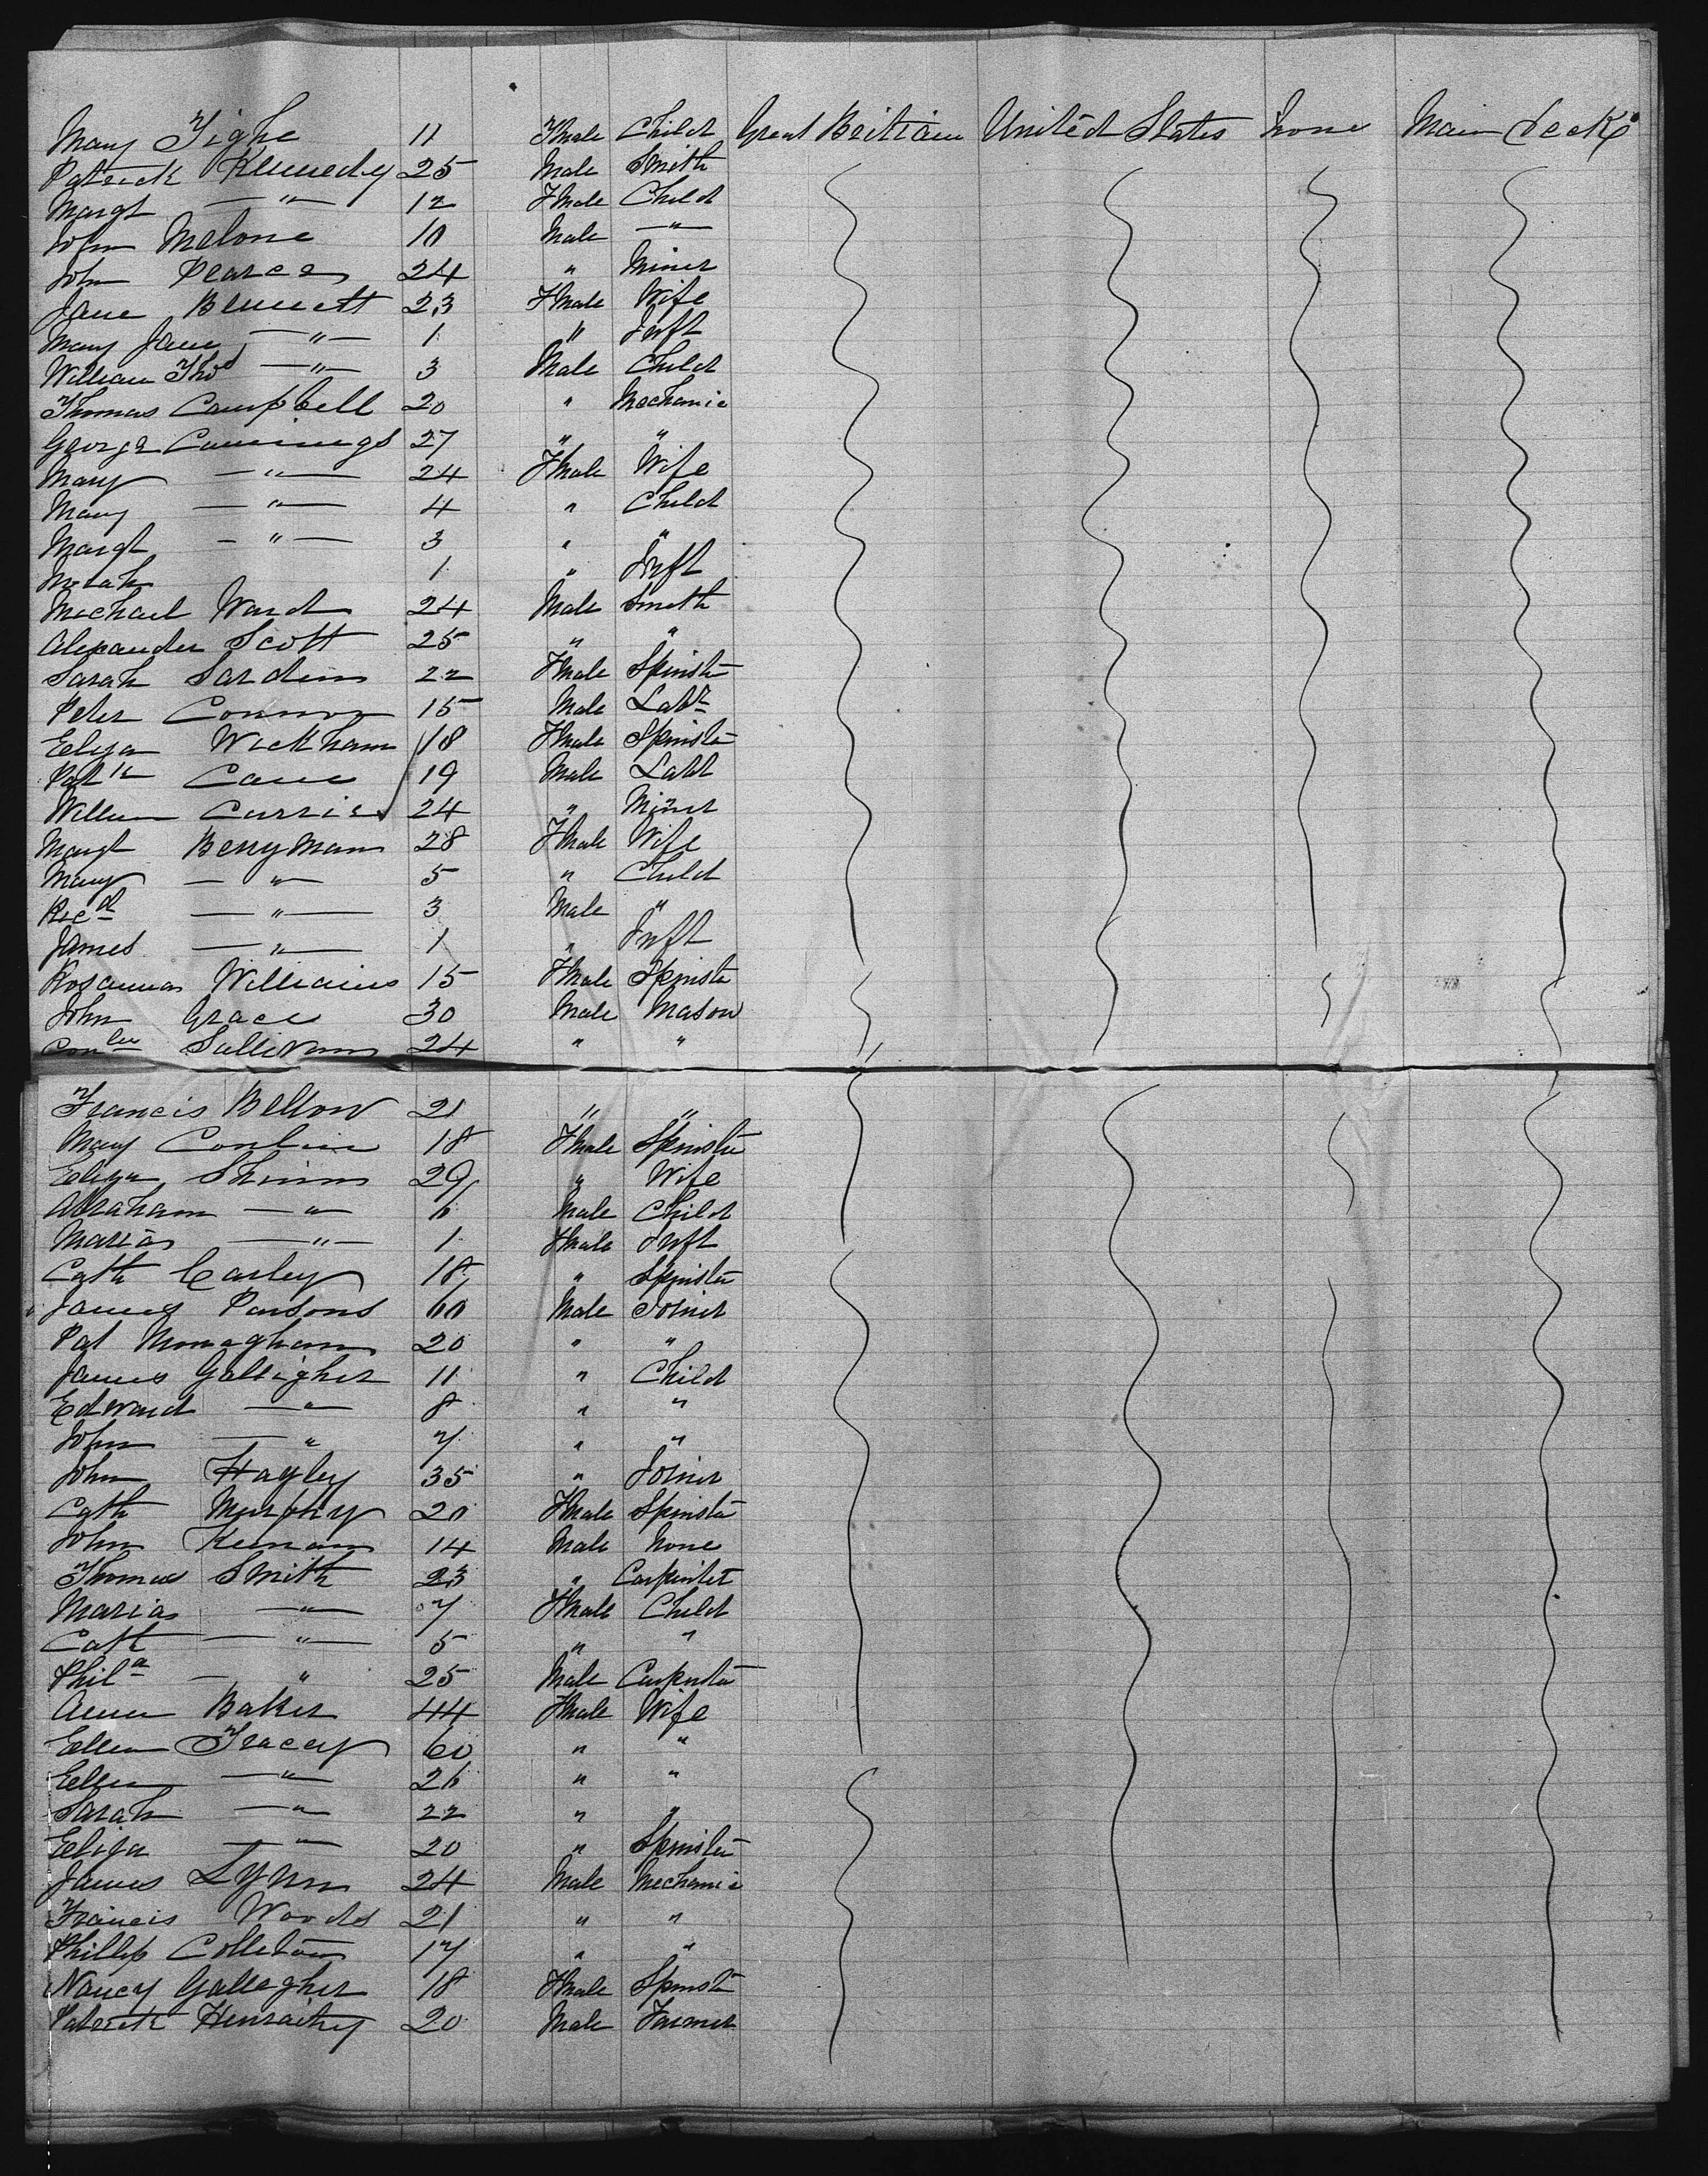 Mary Tighe 11 Fmale Child Great Britian United States None Main deck
Patrick Kennedy 25 Male Smith
Margt —"— 12 Fmale Child
John Melone 10 Male —"—
John Pearce 24 " Miner
Jane Bennett 23 Fmale Wife
Mary Jane —"— 1 " Inft
William Thos —"— 3 Male Child
Thomas Campbell 20 " Mechanic
George Cummings 27 " "
Mary —"— 24 Fmale Wife
Mary —"— 4 " Child
Margt —"— 3 " "
Norah 1 " Inft
Michael Ward 24 Male Smith
Alexander Scott 25 " "
Sarah 22 Fmale Spinster
Peter Connor 15 Male Labr
Eliza Wickham 18 Fmale Spinster
Patk Cane 19 Male Labr
William Currie 24 " Miner
Margt Berryman 28 Fmale Wife
Mary —"— 5 " Child
Ricd —"— 3 Male "
James —"— 1 " Inft
Rosanna Williams 15 Fmale Spinster
John Grace 30 Male Mason
Sullivan 24 " "
Francis Bellow 21 " "
Mary 18 Fmale Spinster
Eliza Shinn 29 " Wife
Abraham —"— 6 Male Child
Maria —"— 1 Fmale Inft
Cath Carley 18 " Spinster
James Parsons 60 Male Joiner
Pat Monaghan 20 " "
James Galligher 11 " Child
Edward —"— 8 " "
John —"— 7 " "
John Hagley 35 " Joiner
Cath Murphy 20 Fmale Spinster
John Kernan 14 Male None
Thomas Smith 23 " Carpinter
Maria —"— 7 Fmale Child
Cath —"— 5 " "
—"— 25 Male Carpinter
Ann Baker 44 Fmale Wife
Ellen Tracey 60 " "
Ellen —"— 26 " "
Sarah —"— 22 " "
Eliza —"— 20 " Spinster
James Lynn 24 Male Mechanic
Francis Woods 21 " "
Phillip Colleton 17 " "
Nancy Gallagher 18 Fmale Spinster
Patrick 20 Male Farmer